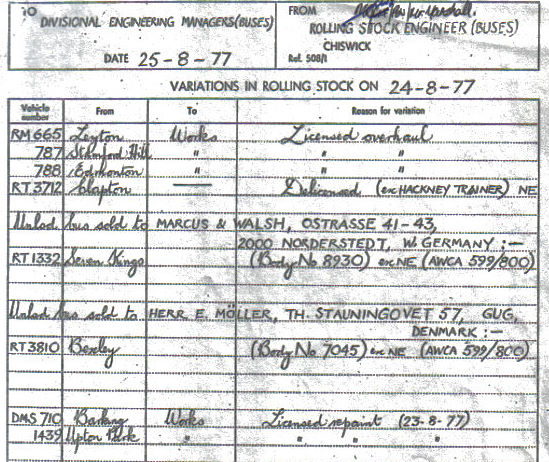 TO DIVISIONAL ENGINEERING MANAGERS (BUSES)
DATE 25-8-77
FROM
ROLLING STOCK ENGINEER (BUSES)
CHISWICK
Ref. 508/1
VARIATIONS IN ROLLING STOCK ON 24-8-77
Vehicle number From To Reason for variation
RM 665 Leyton Works Licensed overhaul
787 Stamford Hill " " "
788 Edmonton " " "
RT 3712 Clapton — Delicensed (ex HACKNEY TRAINER) NE
Unlad bus sold to MARCUS & WALSH, OSTRASSE 41-43,
2000 NORDERSTEDT, W. GERMANY :—
RT 1332 Seven Kings (Body No 8930) ex NE (AWCA 599/800)
Unlad bus sold to HERR E. MÖLLER, TH. STAUNINGOVET 57, GUG,
DENMARK :—
RT 3810 Bexley (Body No 7045) ex NE (AWCA 599/800)
DMS 710 Barking Works Licensed repaint (23-8-77)
1439 Upton Park " " " "